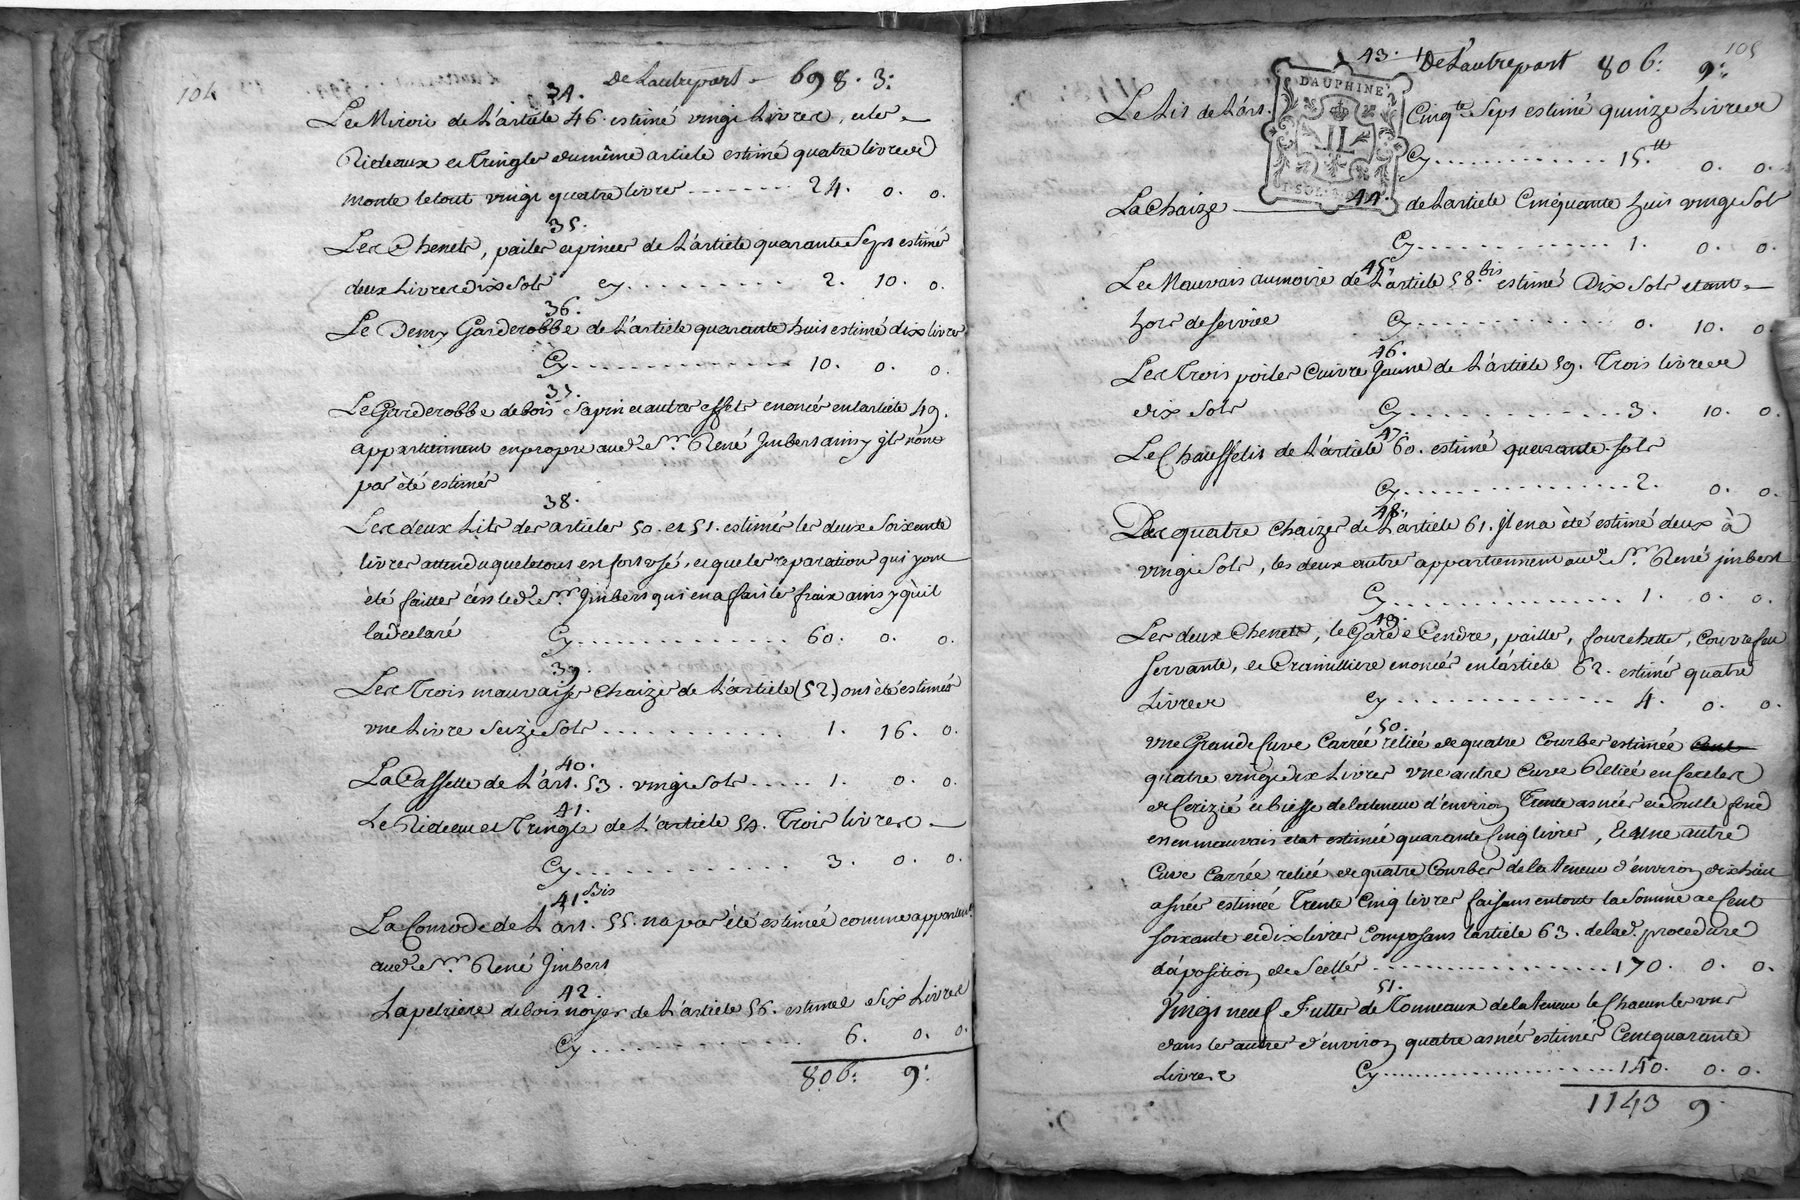 104
De L'autrepart - 698. 3:
34.
Le Miroir de L'article 46. estimé vingt Livres, et les
Rideaux et Tringles du même article estimé quatre livres
monte le tout vingt quatre livres 24. 0. 0.
35.
Les Chenets, pailes et pinces de L'article quarante Sept estimés
deux Livres dix Sols cy 2. 10. 0.
36.
Le Demy Garderobbe de L'article quarante huit estimé dix livres
Cy 10. 0. 0.
37.
Le Garderobbe de bois Sapin et autres effets enoncés en l'article 49.
appartiennent en propre aud. Sr. René Jmbert ainsy jls n'ont
pas été estimés
38.
Les deux Lits des articles 50. et 51. estimés les deux Soixante
livres attendu que le tout est fort usé, et que les reparations qui y ont
été faittes c'est led. Sr. Jmbert qui en a fait les fraix ainsy qu'il
la declaré Cy 60. 0. 0.
39.
Les Trois mauvaises Chaizes de L'article (52) ont été estimés
une Livre Seize Sols 1. 16. 0.
40.
La Cassette de L'art. 53. vingt Sols 1. 0. 0.
41.
Le Rideau et Tringle de L'article 54. Trois livres
Cy 3. 0. 0.
41. bis
La Comode de L'art. 55. na pas été estimée comme appartent.
aud. Sr. René Jmbert
42.
La petriere de bois noyer de L'article 56. estimée Six Livres
Cy 6. 0. 0.
806: 9:
105
43. De L'autrepart 806: 9:
DAUPHINÉ
Le Lit de L'art. Cinqte. Sept estimé quinze Livres
Cy 15.tt 0. 0.
44.
La Chaize de L'article Cinquante huit vingt Sols
Cy 1. 0. 0.
45.
Le Mauvais aumoire de L'article 58. bis estimé Dix Sols etant
hors de service Cy 0. 10. 0
46.
Les Trois poiles Cuivre Jaune de L'article 59. Trois livres
dix Sols Cy 3. 10. 0.
47.
Le Chauffelit de L'article 60. estimé quarante sols
Cy 2. 0. 0.
48.
Des quatre Chaizes de L'article 61. jl en a été estimé deux à
vingt Sols, les deux autres appartiennent aud. Sr. René jmbert
Cy 1. 0. 0.
49.
Les deux Chenets, le Garde Cendre, paille, fourchette, couvrefeu
servante, et Cramilliere enoncés en L'article 62. estimés quatre
Livres cy 4. 0. 0.
50.
une Grande Cuve Carrée reliée de quatre Courbes estimée
quatre vingt dix Livres une autre Cuve Reliée en Cercles
de Cerizié et Biesse de la teneue d'environ Trente asnées
est en mauvais etat estimée quarante Cinq livres, Et une autre
Cuve Carrée reliée de quatre Courbes de la teneue d'environ dix huit
asnées estimée Trente Cinq livres faisant en tout la Somme de Cent
soixante et dix livres Composant l'article 63. de lad. procedure
d'aposition de Scellés 170. 0. 0.
51.
Vingt neuf Futtes de Tonneaux de la teneue le Chacun les uns
dans les autres d'environ quatre asnées estimés Cent quarante
Livres Cy 140. 0. 0.
1143 9.